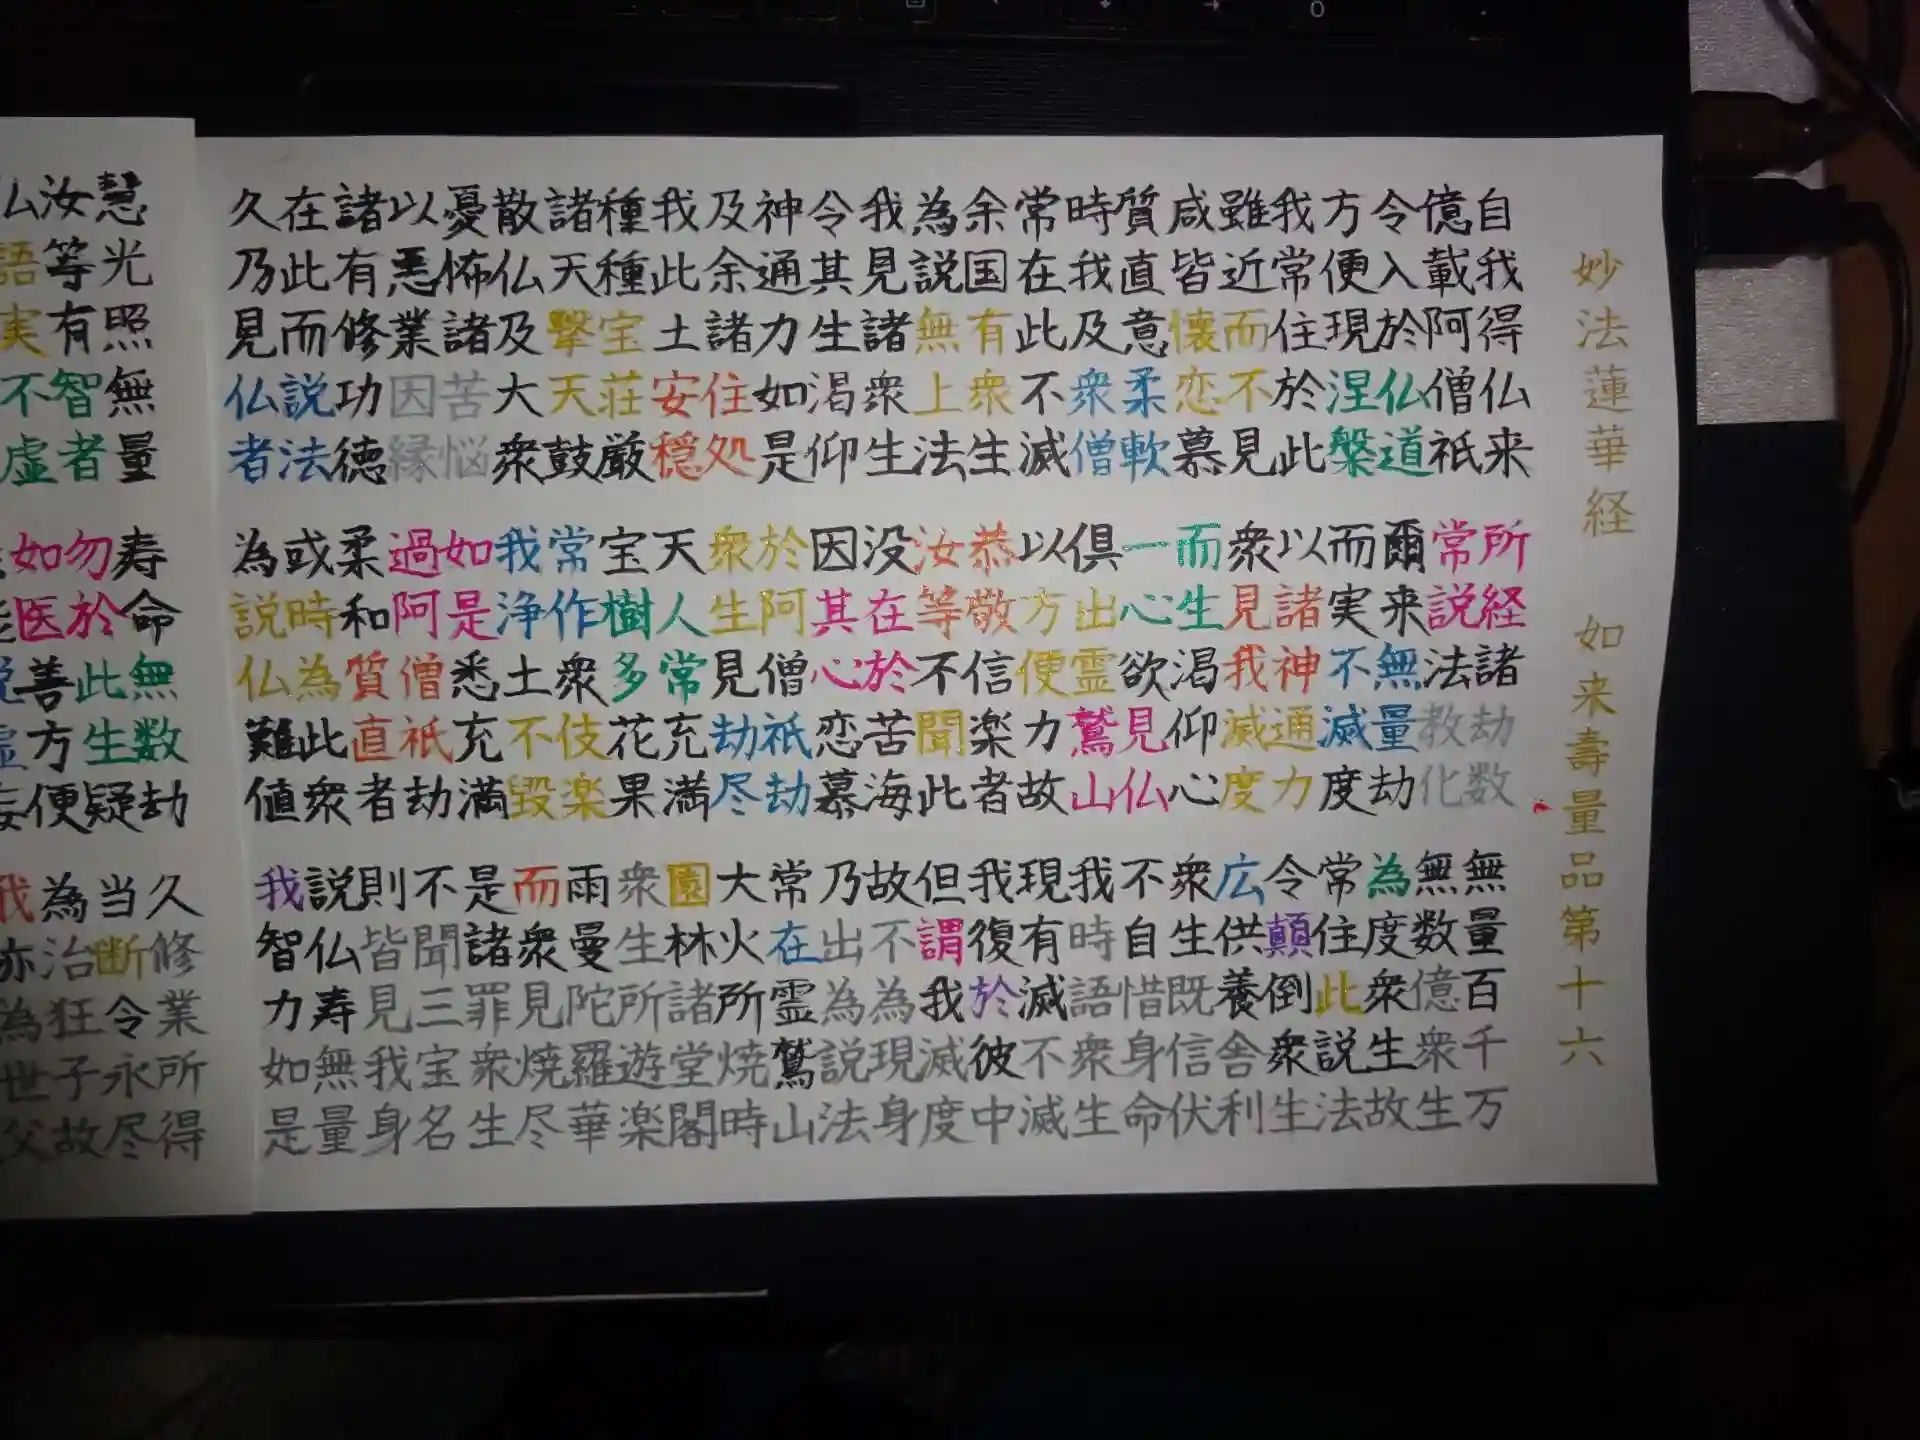 妙法蓮華経 如来壽量品第十六
自我得仏来 所経諸劫数 無量百千万
億載阿僧祇 常説法教化 無数億衆生
令入於仏道 爾来無量劫 為度衆生故
方便現涅槃 而実不滅度 常住此説法
我常住於此 以諸神通力 令顛倒衆生
雖近而不見 衆見我滅度 広供養舎利
咸皆懐恋慕 而生渇仰心 衆生既信伏
質直意柔軟 一心欲見仏 不自惜身命
時我及衆僧 倶出霊鷲山 我時語衆生
常在此不滅 以方便力故 現有滅不滅
余国有衆生 恭敬信楽者 我復於彼中
為説無上法 汝等不聞此 但謂我滅度
我見諸衆生 没在於苦海 故不為現身
令其生渇仰 因其心恋慕 乃出為説法
神通力如是 於阿僧祇劫 常在霊鷲山
及余諸住処 衆生見劫尽 大火所焼時
我此土安穏 天人常充満 園林諸堂閣
種種宝荘厳 宝樹多花果 衆生所遊楽
諸天撃天鼓 常作衆伎楽 雨曼陀羅華
散仏及大衆 我浄土不毀 而衆見焼尽
憂怖諸苦悩 如是悉充満 是諸罪衆生
以悪業因縁 過阿僧祇劫 不聞三宝名
諸有修功徳 柔和質直者 則皆見我身
在此而説法 或時為此衆 説仏寿無量
久乃見仏者 為説仏難値 我智力如是
慧光照無量 寿命無数劫 久修業所得
汝等有智者 勿於此生疑 当断令永尽
仏語実不虚 如医善方便 為治狂子故
能説虚妄 我亦為世父